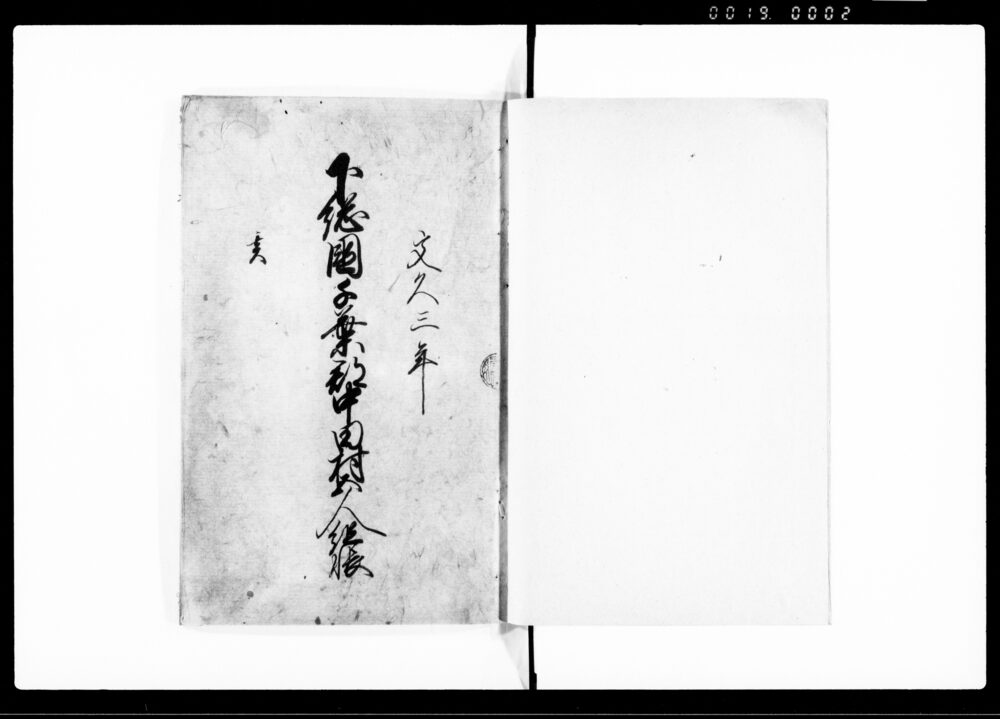 0019. 0002
文久三年
下総國千葉郡中田村五人組帳
亥